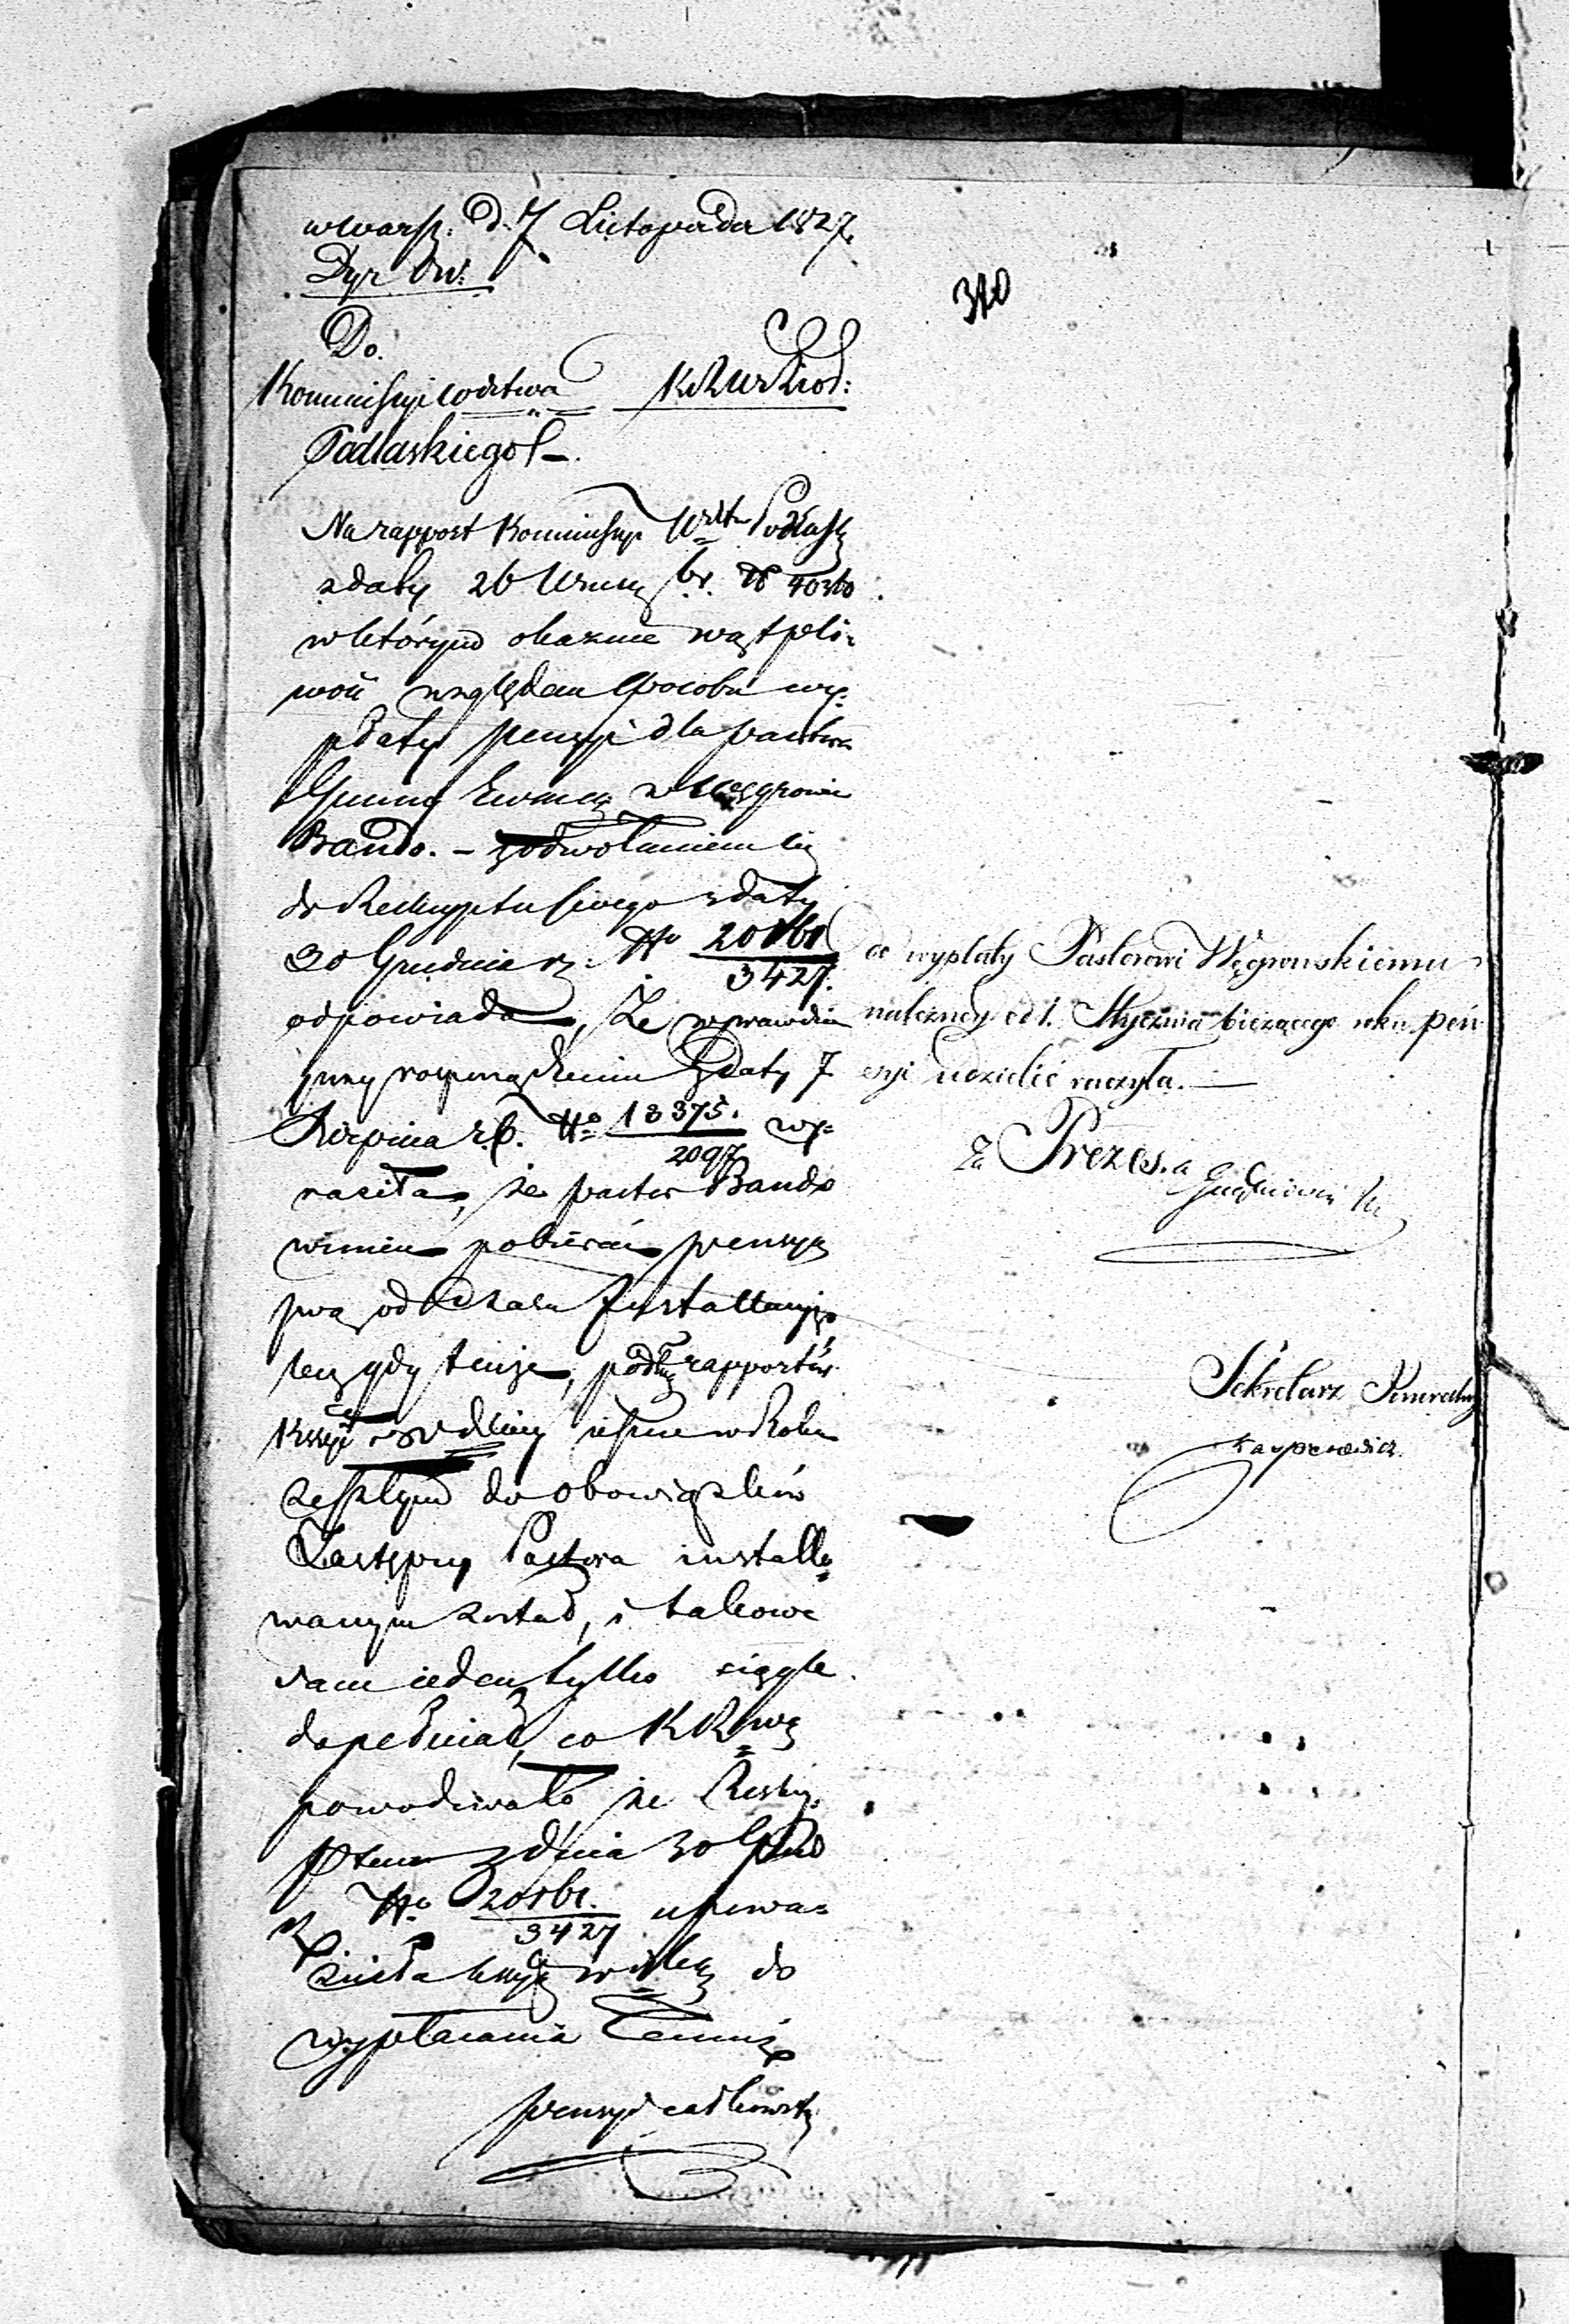 w Warsz: d. 7 Listopada 1827.
Dyr Ow:
370
Do.
Kommissyi Wodztwa
Podlaskiego
Na rapport Kommissyi Wdztw Podlask
z daty 26 b.r. № 40360
w którym okazuie wątpli-
wość względem sposobu wy-
płaty pensyi dla pastora
Gminy Ewang w Węgrowie
Bando. – z odwołaniem się
do Reskryptu swego z daty
30 Grudnia rz: No 20861/3427.
odpowiada, że wprawdzie
rozporządzeniu z daty 7
Sierpnia r.b. No 18375./2097 wy-
raziła, że pastor Bando
winien pobierać pensyą
swą od czasu Installacyi,
lecz gdy tenże, podług rapportów
ieszcze w Roku
zeszłym do obowiązków
Zastępcy Pastora installo-
wanym został, i takowe
sam ieden tylko ciągle
dopełniał, co KR
powodowało że Reskry-
ptem z dnia 30 Grud
No 20861./3427 upowa-
żniła do
wypłacania temuż
pensyi całkowitey
do wypłaty Pastorowi Węgrowskiemu
należney od 1. Stycznia bieżącego roku pen
syi udzielić raczyła.
Za Prezesa
Sekretarz Jeneralny
Kasperowicz